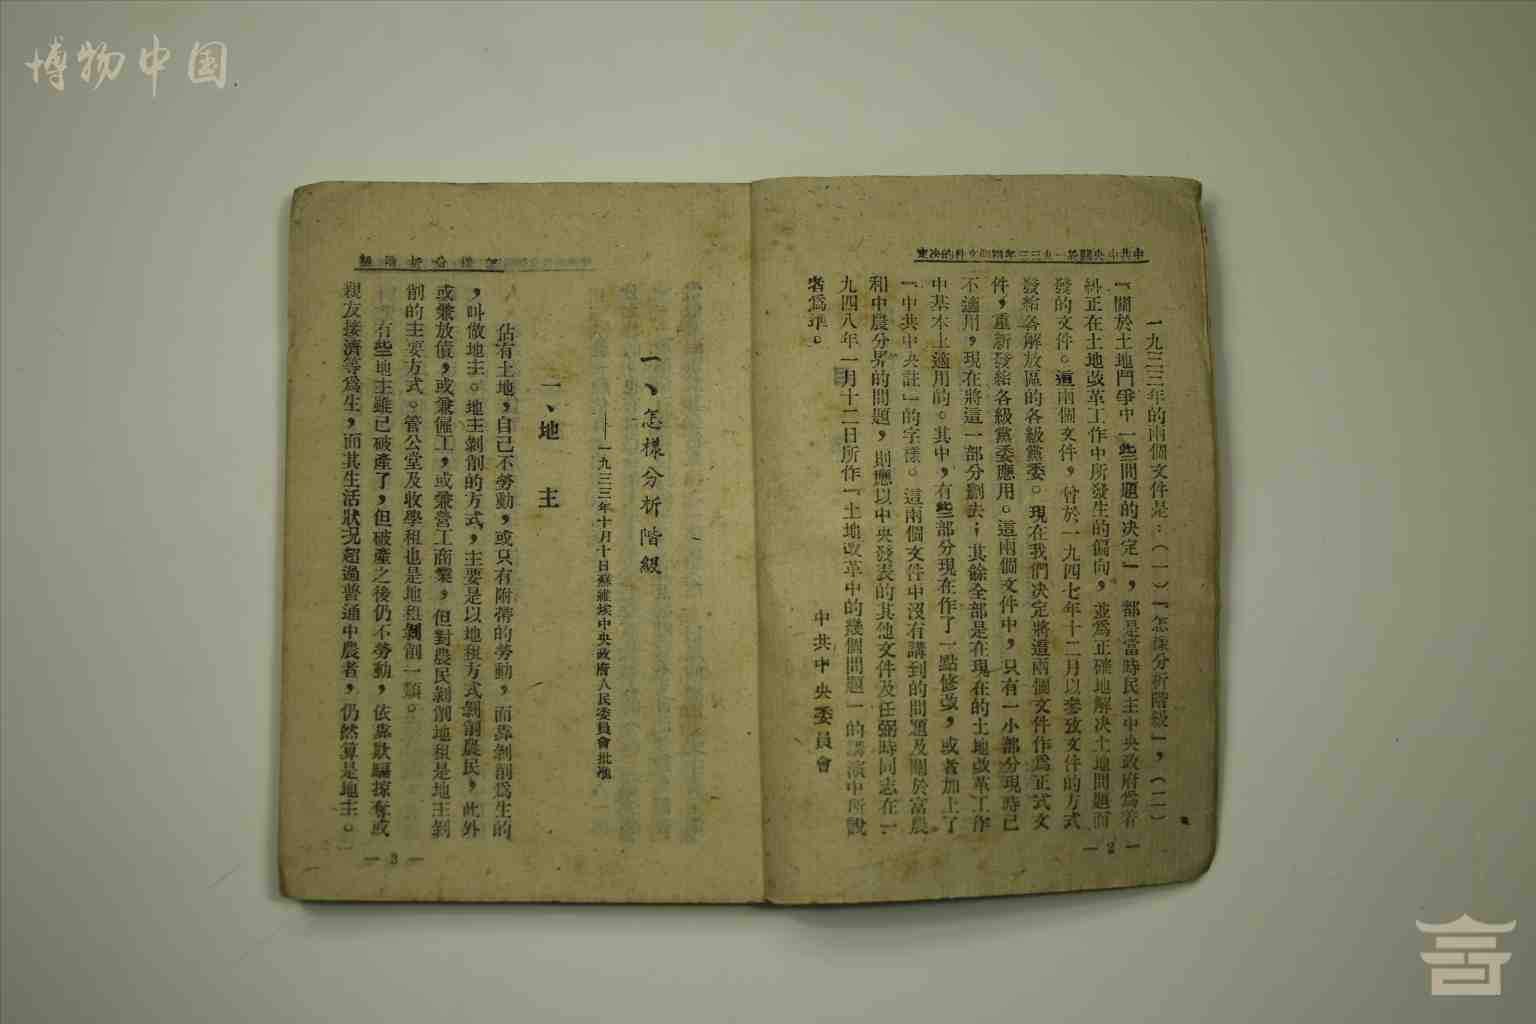 博物中国
中共中央關於一九三三年兩個文件的决定
一九三三年的兩個文件是：（一）『怎樣分析階級』，（二）
『關於土地鬥爭中一些問題的决定』，都是當時民主中央政府爲着
糾正在土地改革工作中所發生的偏向，並爲正確地解决土地問題而
發的文件。這兩個文件，曾於一九四七年十二月以參攷文件的方式
發給各解放區的各級黨委。現在我們决定將這兩個文件作爲正式文
件，重新發給各級黨委應用。這兩個文件中，只有一小部分現時已
不適用，現在將這一部分劃去；其餘全部是在現在的土地改革工作
中基本上適用的。其中，有些部分現在作了一點修改，或者加上了
『中共中央註』的字樣。這兩個文件中沒有講到的問題及關於富農
和中農分界的問題，則應以中央發表的其他文件及任弼時同志在一
九四八年一月十二日所作『土地改革中的幾個問題』的講演中所說
者爲準。
中共中央委員會
— 2 —
怎樣分析階級
一、怎樣分析階級
——一九三三年十月十日蘇維埃中央政府人民委員會批準
一、地 主
佔有土地，自己不勞動，或只有附帶的勞動，而靠剝削爲生的
，叫做地主。地主剝削的方式，主要是以地租方式剝削農民，此外
或兼放債，或兼僱工，或兼營工商業，但對農民剝削地租是地主剝
削的主要方式。管公堂及收學租也是地租剝削一類。
有些地主雖已破產了，但破產之後仍不勞動，依靠欺騙掠奪或
親友接濟等爲生，而其生活狀况超過普通中農者，仍然算是地主。
— 3 —